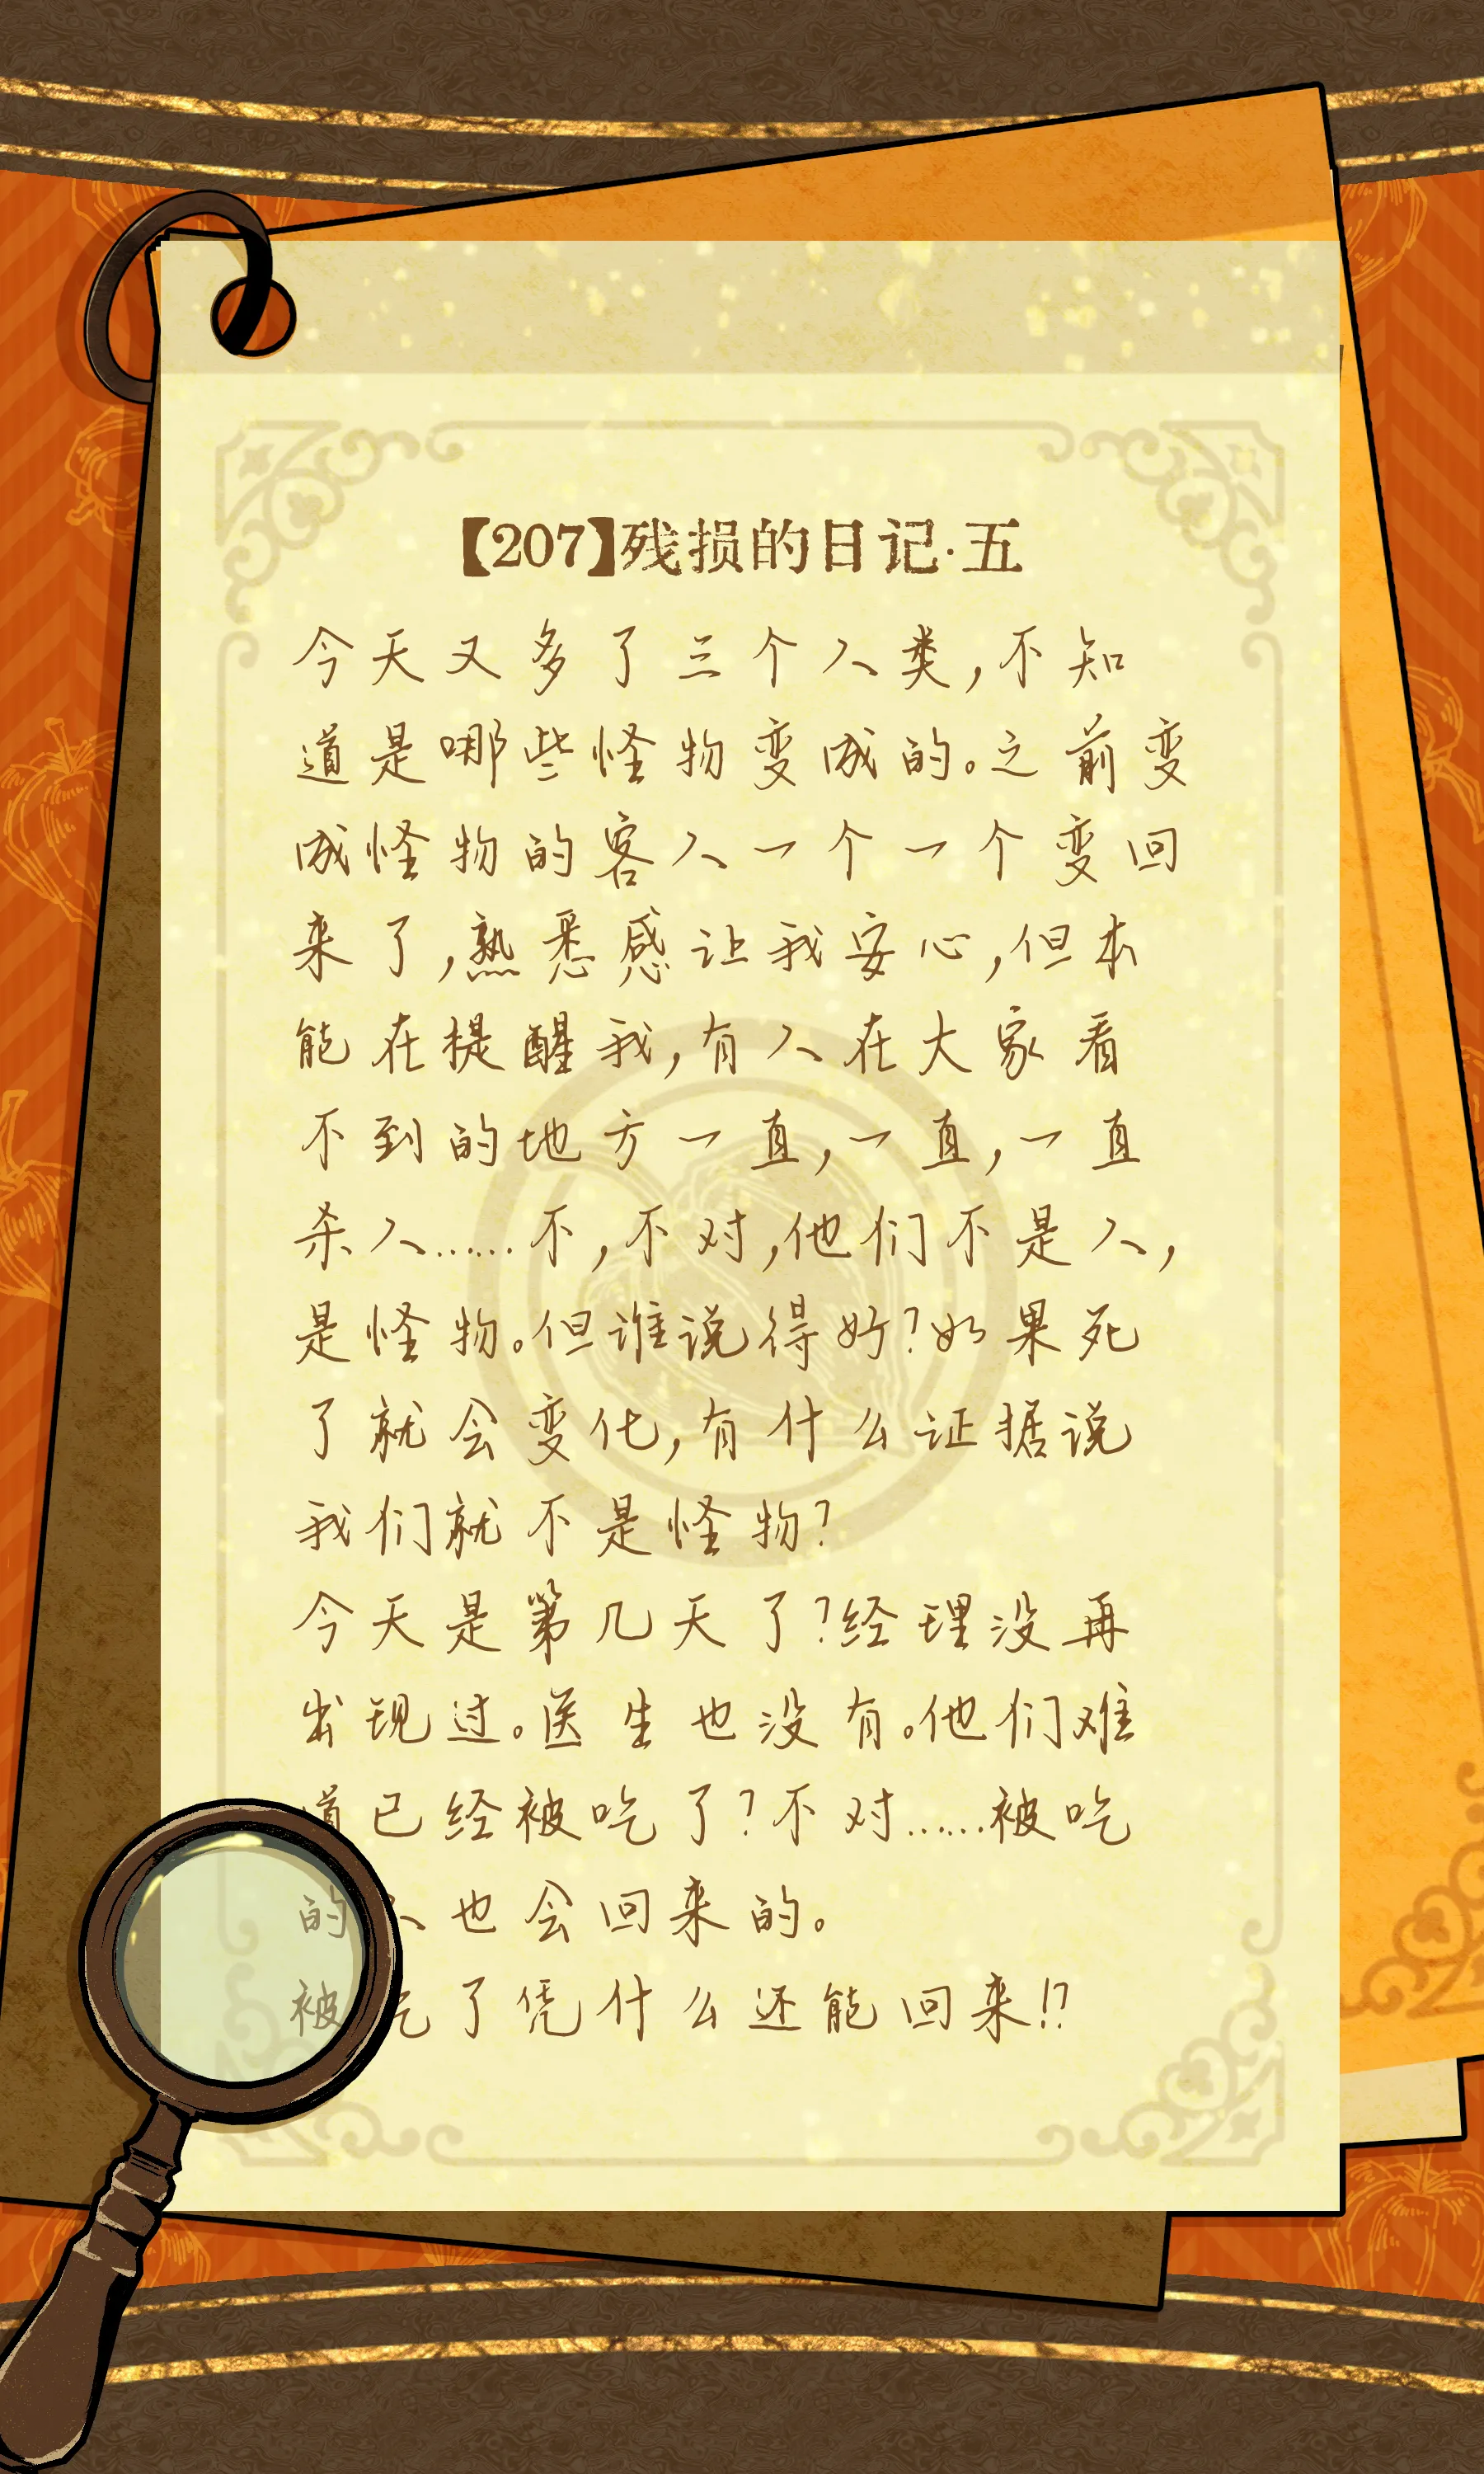 【207】残损的日记·五
今天又多了三个人类,不知
道是哪些怪物变成的。之前变
成怪物的客人一个一个变回
来了,熟悉感让我安心,但本
能在提醒我,有人在大家看
不到的地方一直,一直,一直
杀人……不,不对,他们不是人,
是怪物。但谁说得好?如果死
了就会变化,有什么证据说
我们就不是怪物?
今天是第几天了?经理没再
出现过。医生也没有。他们难
道已经被吃了?不对……被吃
的人也会回来的。
被吃了凭什么还能回来!?